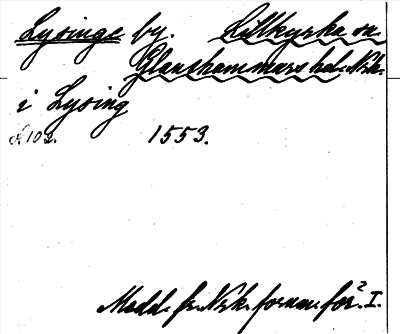 Lysinge by. Lillkyrka sn.
Glanshammars hd. Nrk.
i Lysing
N 102. 1553.
Medd. fr. Nrk. fornm. för. 2 I.